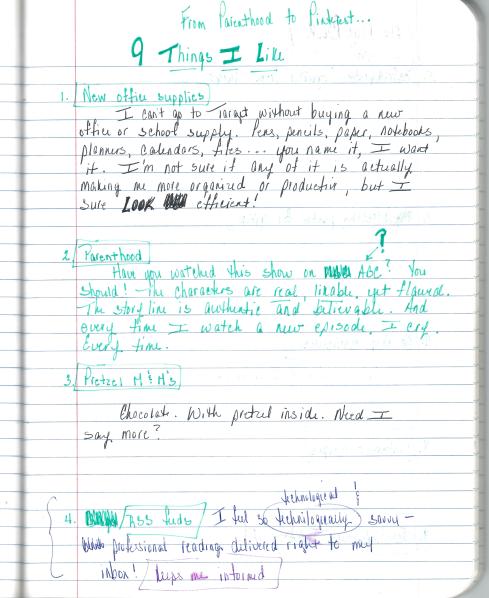 From Parenthood to Pinterest...
9 Things I Like
1. New office supplies
I can't go to Target without buying a new
office or school supply. Pens, pencils, paper, notebooks,
planners, calendars, files... you name it, I want
it. I'm not sure if any of it is actually
making me more organized or productive, but I
sure LOOK efficient!
?
2. Parenthood
Have you watched this show on ABC? You
should! The characters are real, likable, yet flawed.
The story line is authentic and believable. And
every time I watch a new episode, I cry.
Every time.
3. Pretzel M&M's
Chocolate. With pretzel inside. Need I
say more?
technological !
4. RSS feeds I feel so technilogically savvy -
professional readings delivered right to my
inbox! keeps me informed